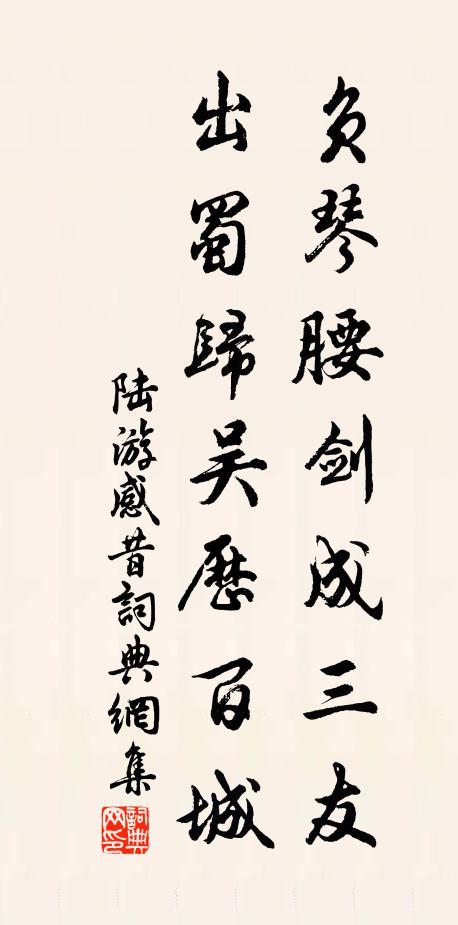 负琴腰剑成三友
出蜀歸吴歷百城
陆游感昔詞典網集
詞典网印